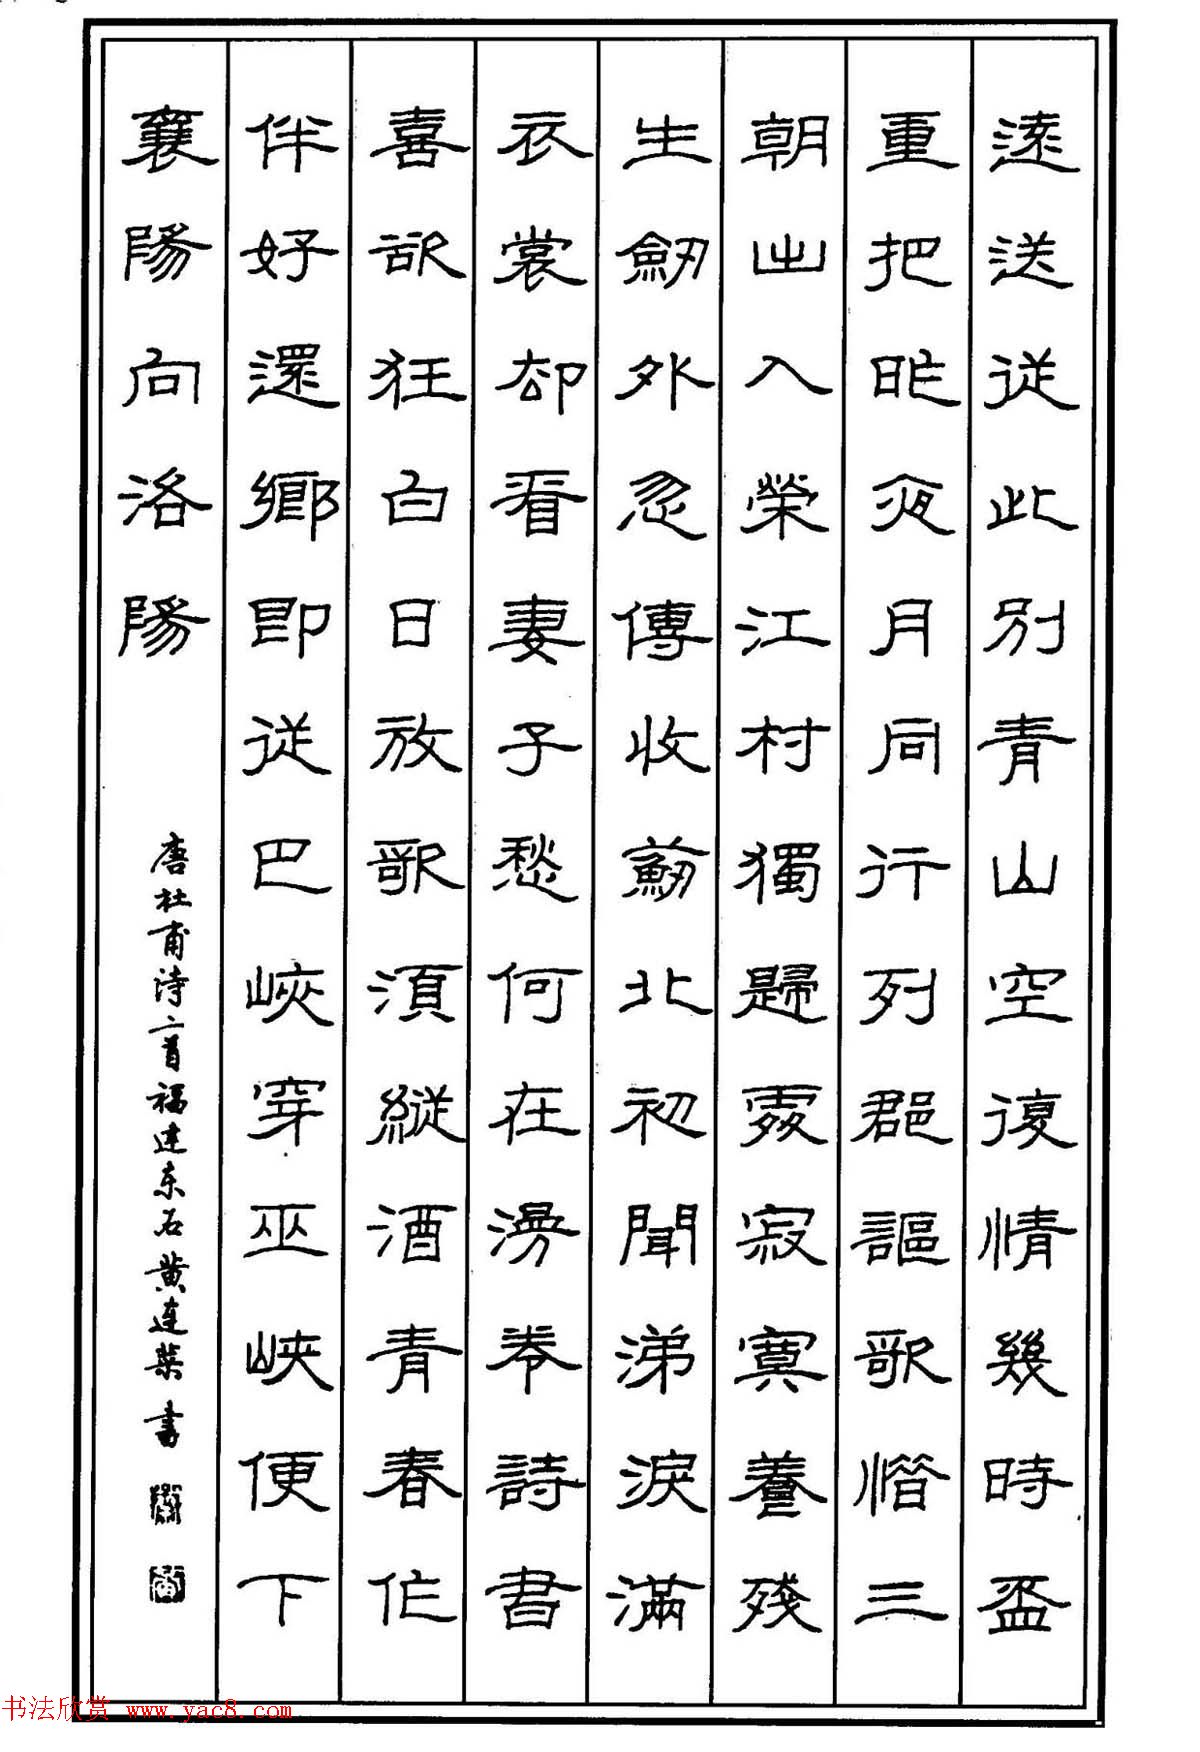 遠送從此別青山空復情幾時盃
重把昨夜月同行列郡謳歌惜三
朝出入榮江村獨歸處寂寞養殘
生劍外忽傳收薊北初聞涕淚滿
衣裳却看妻子愁何在漫卷詩書
喜欲狂白日放歌須縱酒青春作
伴好還鄉即從巴峽穿巫峽便下
襄陽向洛陽
唐杜甫诗二首福建东石黄连荣书
书法欣赏 www.yac8.com